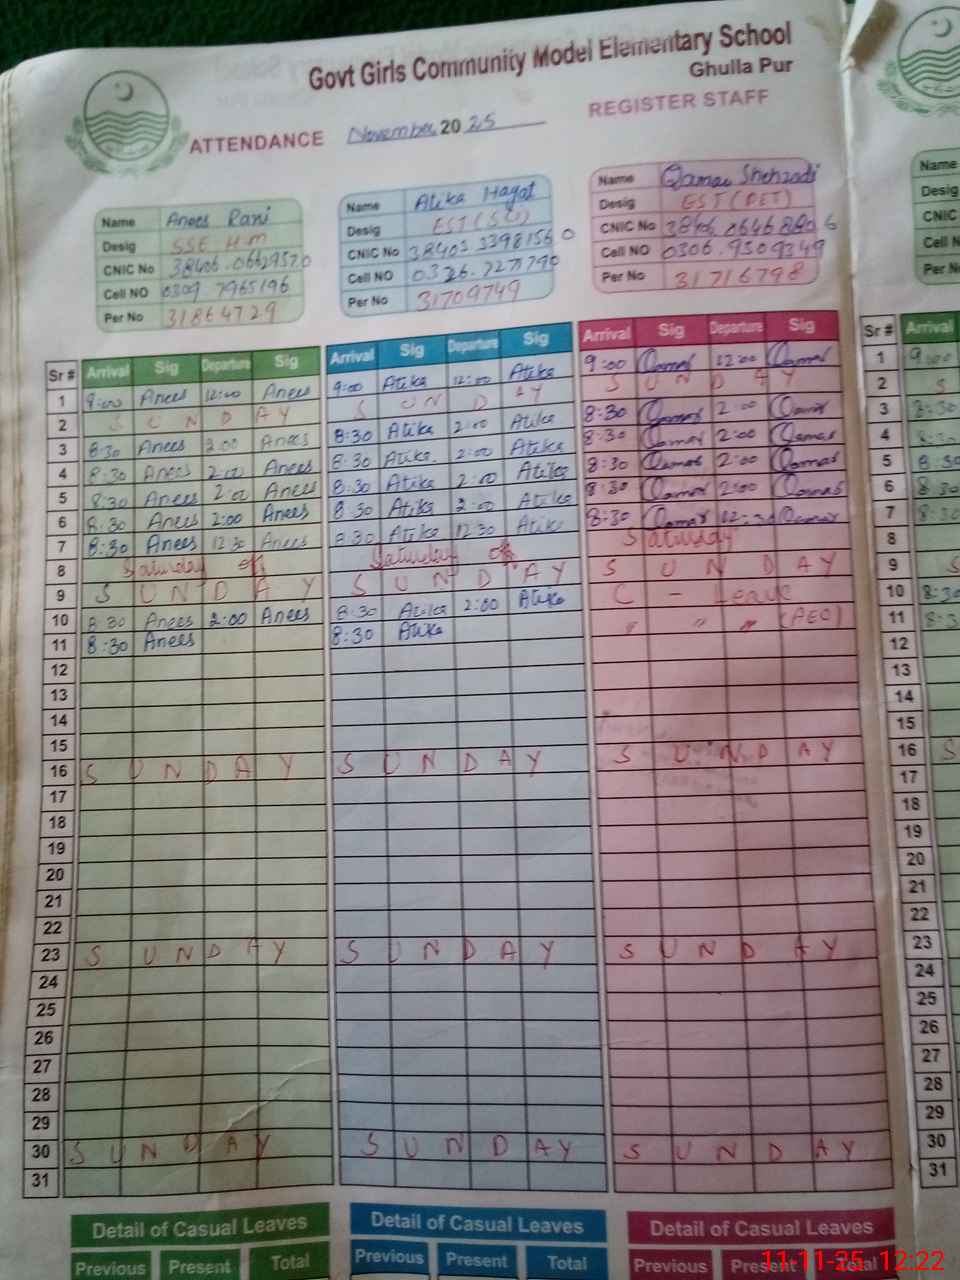 Govt Girls Community Model Elementary School
Ghulla Pur
ATTENDANCE November 2025 REGISTER STAFF
Name Anees Rani
Desig SSE H.m
CNIC No
Cell NO 0309 7965196
Per No 31864729
Name Atika Hayat
Desig EST (SU)
CNIC No 38403 3398156 0
Cell NO 0326.7271790
Per No 31709749
Name Qamar Shehzadi
Desig EST (PET)
CNIC No
Cell NO 0306.9509349
Per No 31716798
Name
Desig
CNIC
Cell N
Per No
Sr # Arrival Sig Departure Sig Arrival Sig Departure Sig Arrival Sig Departure Sig Sr # Arrival
1 9:00 Anees 12:00 Anees 9:00 Atika 12:00 Atika 9:00 Qamar 12:00 Qamar 1 9:00
2 S U N D A Y S U N D A Y S U N D A Y 2 S
3 8:30 Anees 2:00 Anees 8:30 Atika 2:00 Atika 8:30 Qamar 2:00 Qamar 3 8:30
4 8:30 Anees 2:00 Anees 8:30 Atika. 2:00 Atika 8:30 Qamar 2:00 Qamar 4 8:30
5 8:30 Anees 2:00 Anees 8:30 Atika 2:00 Atika 8:30 Qamar 2:00 Qamar 5 8:30
6 8:30 Anees 2:00 Anees 8:30 Atika 2:00 Atika 8:30 Qamar 2:00 Qamar 6 8:30
7 8:30 Anees 12:30 Anees 8:30 Atika 12:30 Atika 8:30 Qamar 12:30 Qamar 7 8:30
8 Saturday off Saturday off Saturday 8
9 S U N D A Y S U N D A Y S U N D A Y 9 S
10 8:30 Anees 2:00 Anees 8:30 Atika 2:00 Atika C - Leave 10 8:30
11 8:30 Anees 8:30 Atika " " " (AEO) 11 8:3
12 12
13 13
14 14
15 15
16 S U N D A Y S U N D A Y S U N D A Y 16 S
17 17
18 18
19 19
20 20
21 21
22 22
23 S U N D A Y S U N D A Y S U N D A Y 23
24 24
25 25
26 26
27 27
28 28
29 29
30 S U N D A Y S U N D A Y S U N D A Y 30
31 31
Detail of Casual Leaves Detail of Casual Leaves Detail of Casual Leaves
Previous Present Total Previous Present Total Previous Present Total
11-11-25 12:22